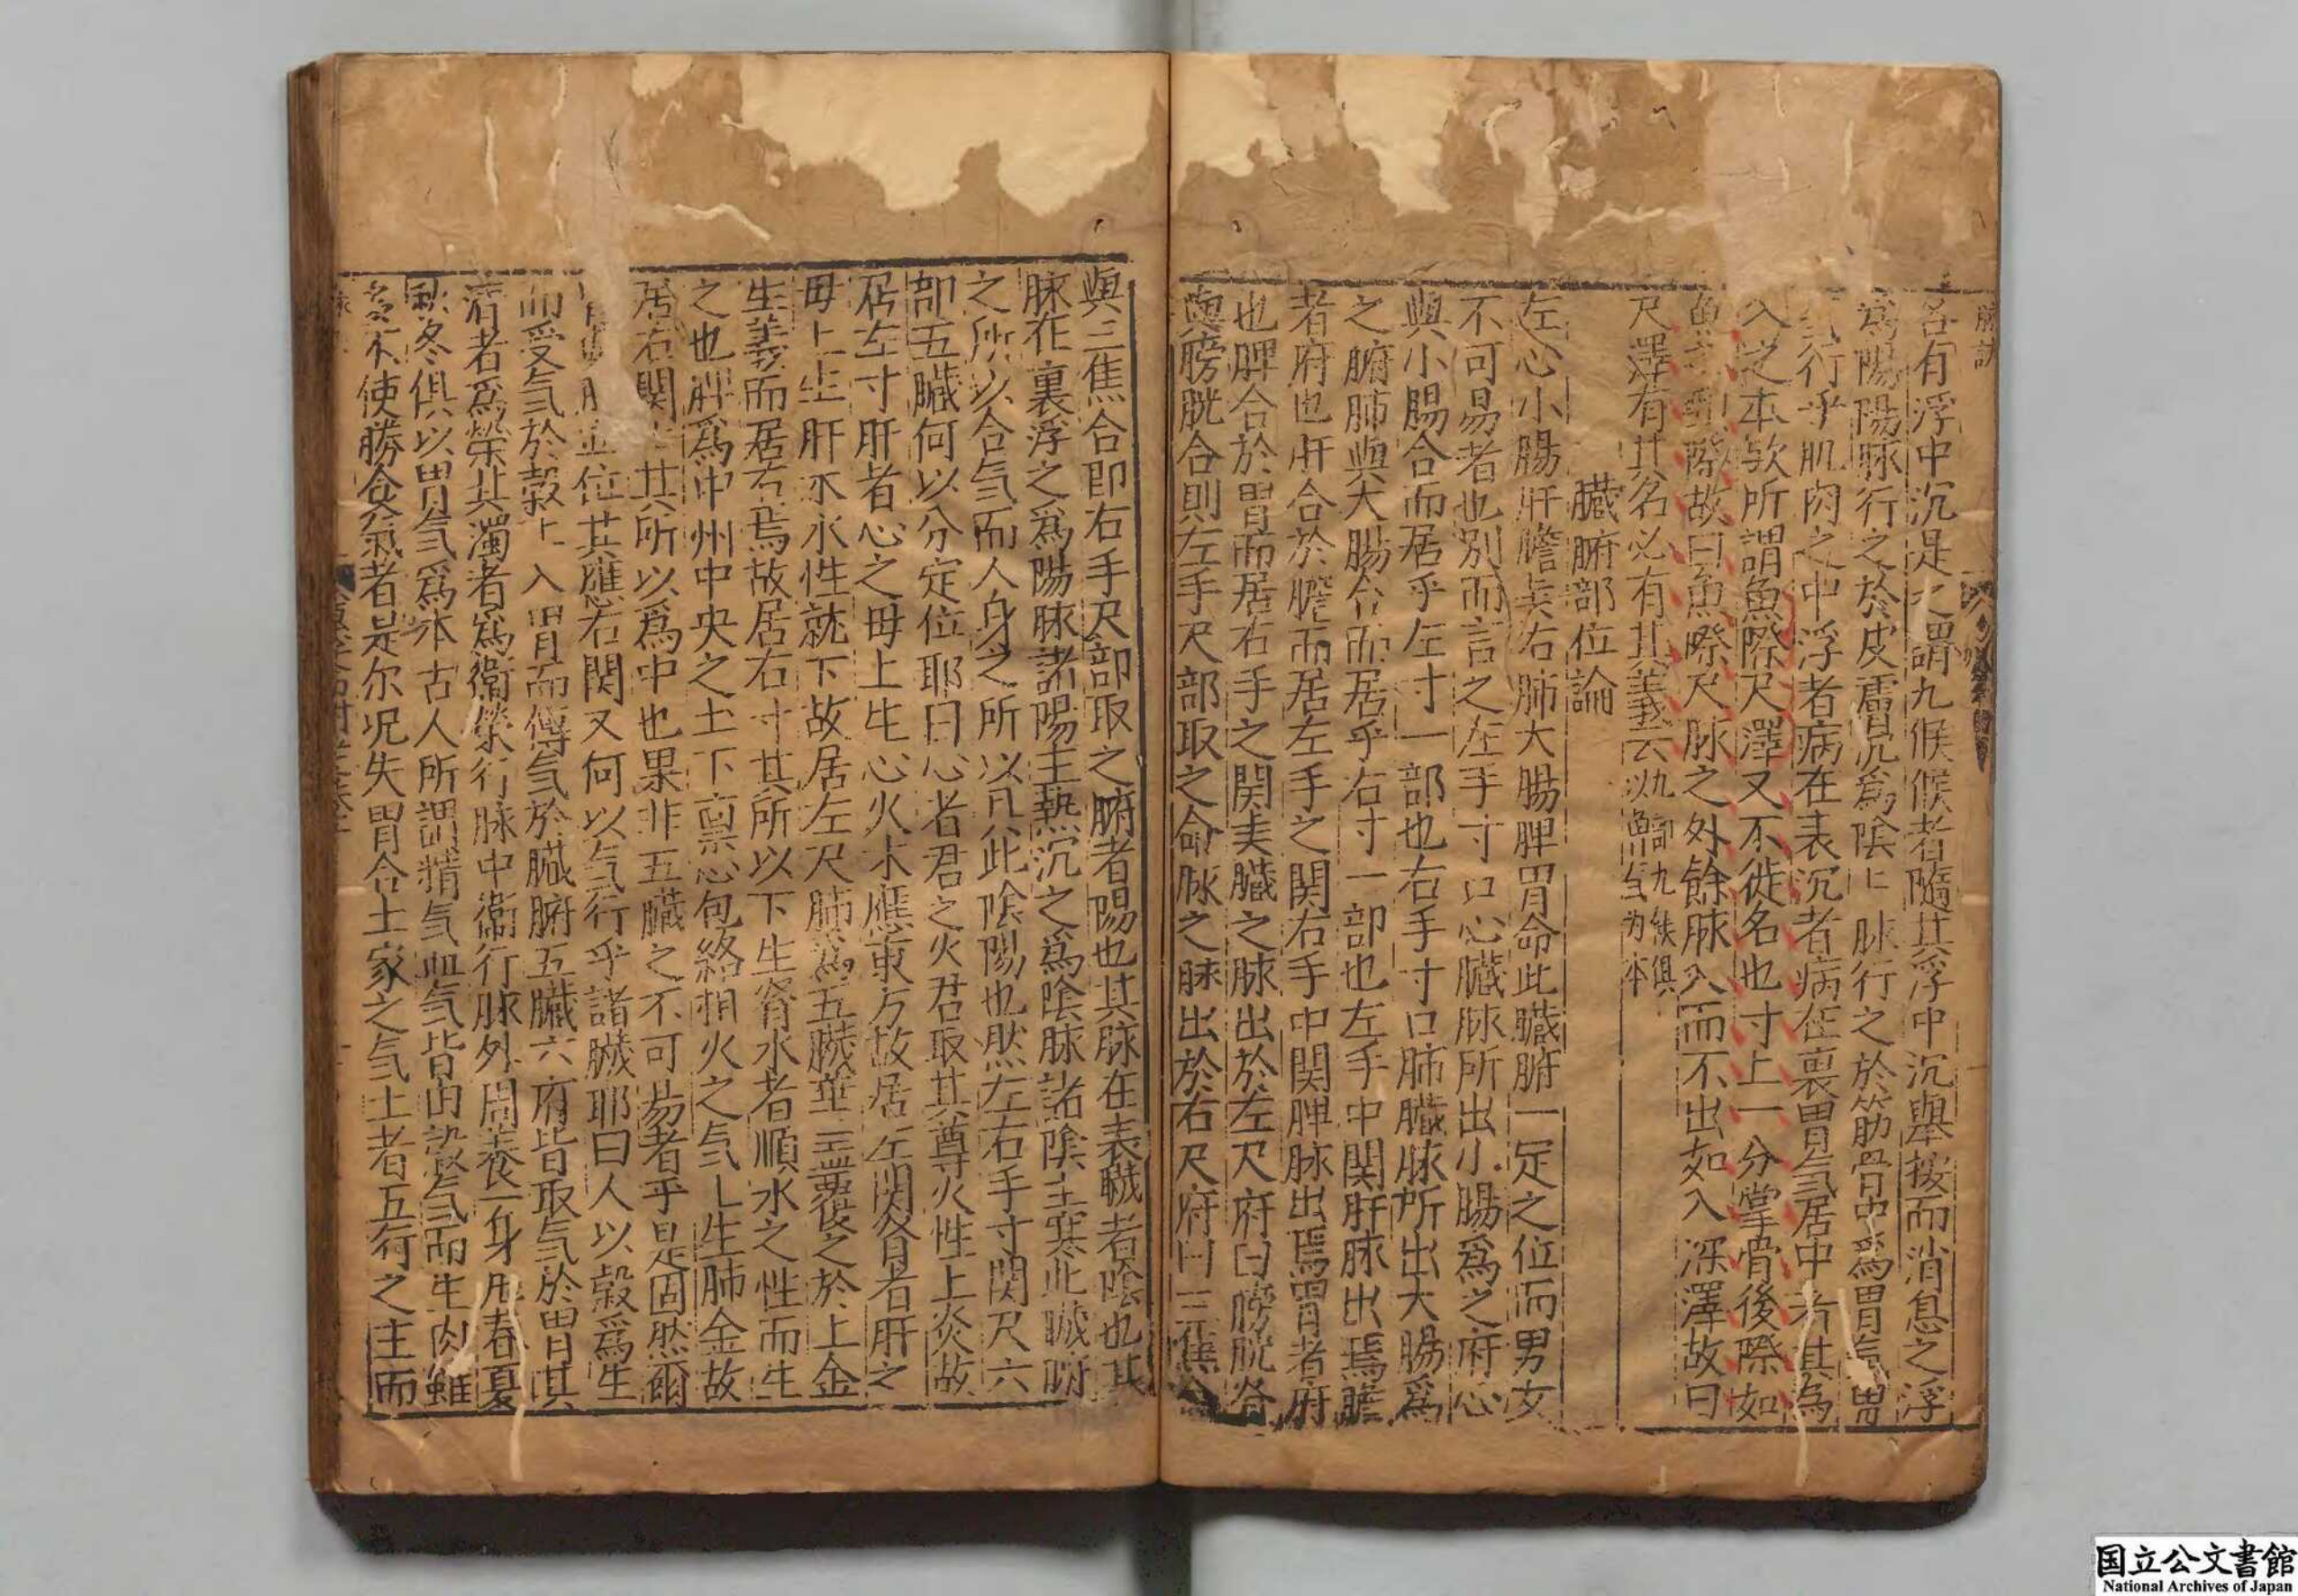 脉訣
各有浮中沉是之謂九候候者隨其浮中沉舉按而消息之浮
爲陽陽脉行之於皮膚沉爲陰上脉行之於筋骨中爲胃氣胃
气行乎肌肉之中浮者病在表沉者病在裏胃气居中者其為
入之本欤所謂魚際尺澤又不徙名也寸上一分掌骨後際如
魚之際故曰魚際尺脉之外餘脉入而不出如入深澤故曰
尺澤有其名必有其義云
九部九候俱
以魚气为本
臓腑部位論
左心小腸肝膽腎右肺大腸脾胃命此臓腑一定之位而男女
不可易者也別而言之左手寸口心臓脉所出小腸爲之府心
與小腸合而居乎左寸一部也右手寸口肺臓脉所出大腸爲
之腑肺與大腸合而居乎右寸一部也左手中関肝脉出焉膽
者府也肝合於膽而居左手之関右手中関脾脉出焉胃者府
也脾合於胃而居右手之関夫臓之脉出於左尺府曰膀胱各
與膀胱合則左手尺部取之命脉之脉出於右尺府曰三焦合
與三焦合即右手尺部取之腑者陽也其脉在表臓者陰也其
脉在裏浮之爲陽脉諸陽主熱沉之爲陰脉諸陰主寒此臓腑
之所以合气而人身之所以凡此陰陽也然左右手寸関尺六
部五臓何以分定位耶曰心者君之火君取其尊火性上炎故
居左寸肝者心之毋上生心火木應東方故居左関腎者肝之
毋上生肝木水性就下故居左尺肺爲五臓華盖覆之於上金
生義而居右焉故居右寸其所以下生腎水者順水之性而生
之也脾爲中州中央之土下禀心包絡相火之气上生肺金故
居右関 其所以爲中也果非五臓之不可易者乎是固然爾
並位其應右関又何以气行乎諸臓耶曰人以穀爲生
而受气於穀上入胃而傳气於臓腑五臓六府皆取气於胃其
清者爲榮其濁者爲衛榮行脉中衛行脉外周養一身凡春夏
秋冬俱以胃气爲本古人所謂精气血气皆由穀气而生肉雖
多不使勝食氣者是尔况失胃合土家之气土者五行之主而
国立公文書館
National Archives of Japan